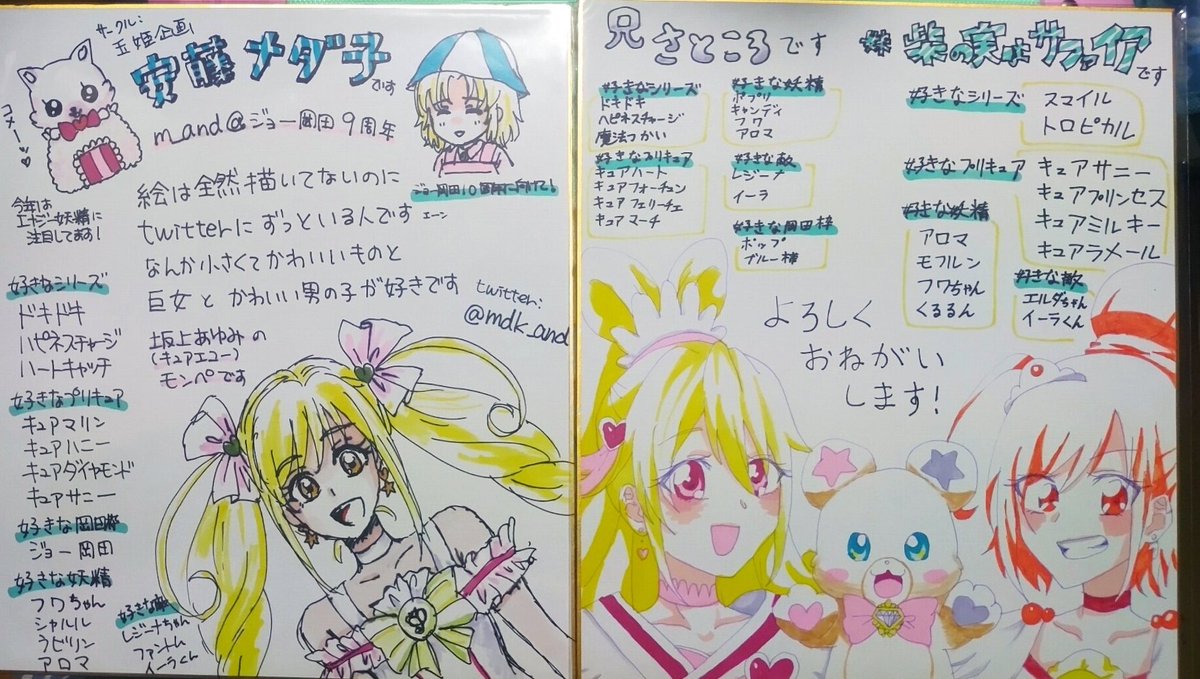 サークル:
玉姫企画
安藤メダ子
です
コメーーッ
m_and@ジョー岡田9周年
ジョー岡田10周年に向けて!
今年は
エナジー妖精に
注目してます!
絵は全然描いてないのに
twitterにずっといる人です
エーン
なんか小さくてかわいいものと
巨女とかわいい男の子が好きです
twitter:
@mdk_and
坂上あゆみの
(キュアエコー)
モンペです
好きなシリーズ
ドキドキ
ハピネスチャージ
ハートキャッチ
好きなプリキュア
キュアマリン
キュアハニー
キュアダイヤモンド
キュアサニー
好きな岡田枠
ジョー岡田
好きな妖精
フワちゃん
シャルル
ラビリン
アロマ
好きな敵
レジーナちゃん
ファントム
イーラくん
兄さところです
好きなシリーズ
ドキドキ
ハピネスチャージ
魔法つかい
好きなプリキュア
キュアハート
キュアフォーチュン
キュアフェリーチェ
キュアマーチ
好きな妖精
ポプリ
キャンディ
フワ
アロマ
好きな敵
レジーナ
イーラ
好きな岡田枠
ポップ
ブルー様
よろしく
おねがい
します!
柴の実はサファイア
です
好きなシリーズ
スマイル
トロピカル
好きなプリキュア
キュアサニー
キュアプリンセス
キュアミルキー
キュアラメール
好きな妖精
アロマ
モフルン
フワちゃん
くるるん
好きな敵
エルダちゃん
イーラくん